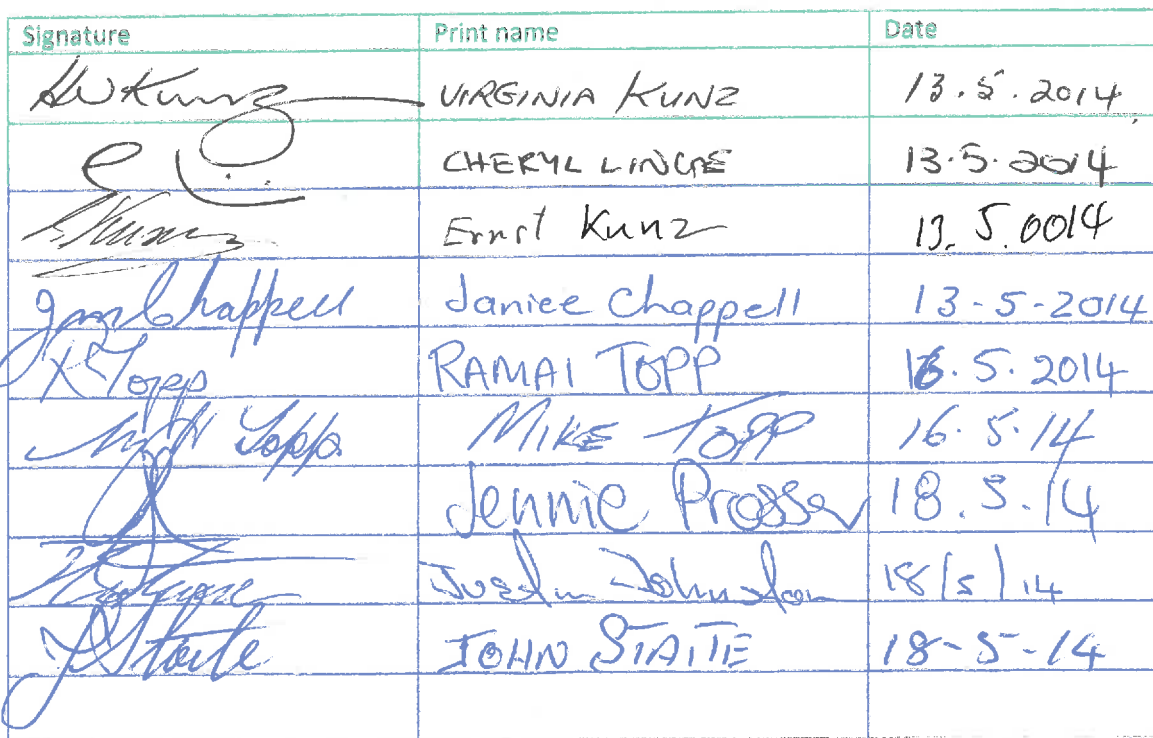 Signature Print name Date
HVKunz VIRGINIA KUNZ 13.5.2014
CHERYL 13.5.2014
Kunz Ernst Kunz 13.5.0014
Jan Chappell Janice Chappell 13-5-2014
Topp RAMAI TOPP 16.5.2014
Topp MIKE TOPP 16.5.14
Jennie Prosser 18.5.14
Johnston 18/5/14
JStaite JOHN STAITE 18-5-14